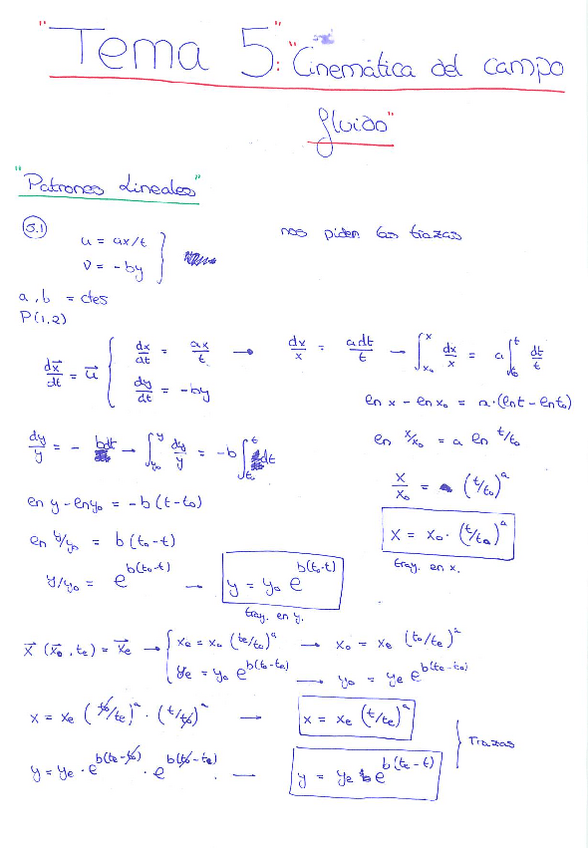 "Tema 5": "Cinemática del campo
fluido"
"Patrones Lineales"
5.1 u = ax/t nos piden las trazas
v = -by
a, b = ctes
P(1,2)
dx⃗/dt = u⃗ { dx/dt = ax/t → dx/x = a dt/t → ∫_{x₀}^{x} dx/x = a ∫_{t₀}^{t} dt/t
dy/dt = -by
ln x - ln x₀ = a·(ln t - ln t₀)
dy/y = - bdt → ∫_{y₀}^{y} dy/y = -b ∫_{t₀}^{t} dt
ln x/x₀ = a ln t/t₀
x/x₀ = (t/t₀)^a
ln y - ln y₀ = -b (t - t₀)
x = x₀· (t/t₀)^a
ln y/y₀ = b (t₀ - t)
tray. en x.
y/y₀ = e^{b(t₀-t)} → y = y₀ e^{b(t₀-t)}
tray. en y.
x⃗ (x⃗₀, te) = x⃗e → { xe = x₀ (te/t₀)^a → x₀ = xe (t₀/te)^a
ye = y₀ e^{b(t₀-te)} → y₀ = ye e^{b(te-t₀)}
x = xe (t₀/te)^a · (t/t₀)^a → x = xe (t/te)^a
Trazas
y = ye · e^{b(te-t₀)} · e^{b(t₀-te)} → y = ye e^{b(te-t)}